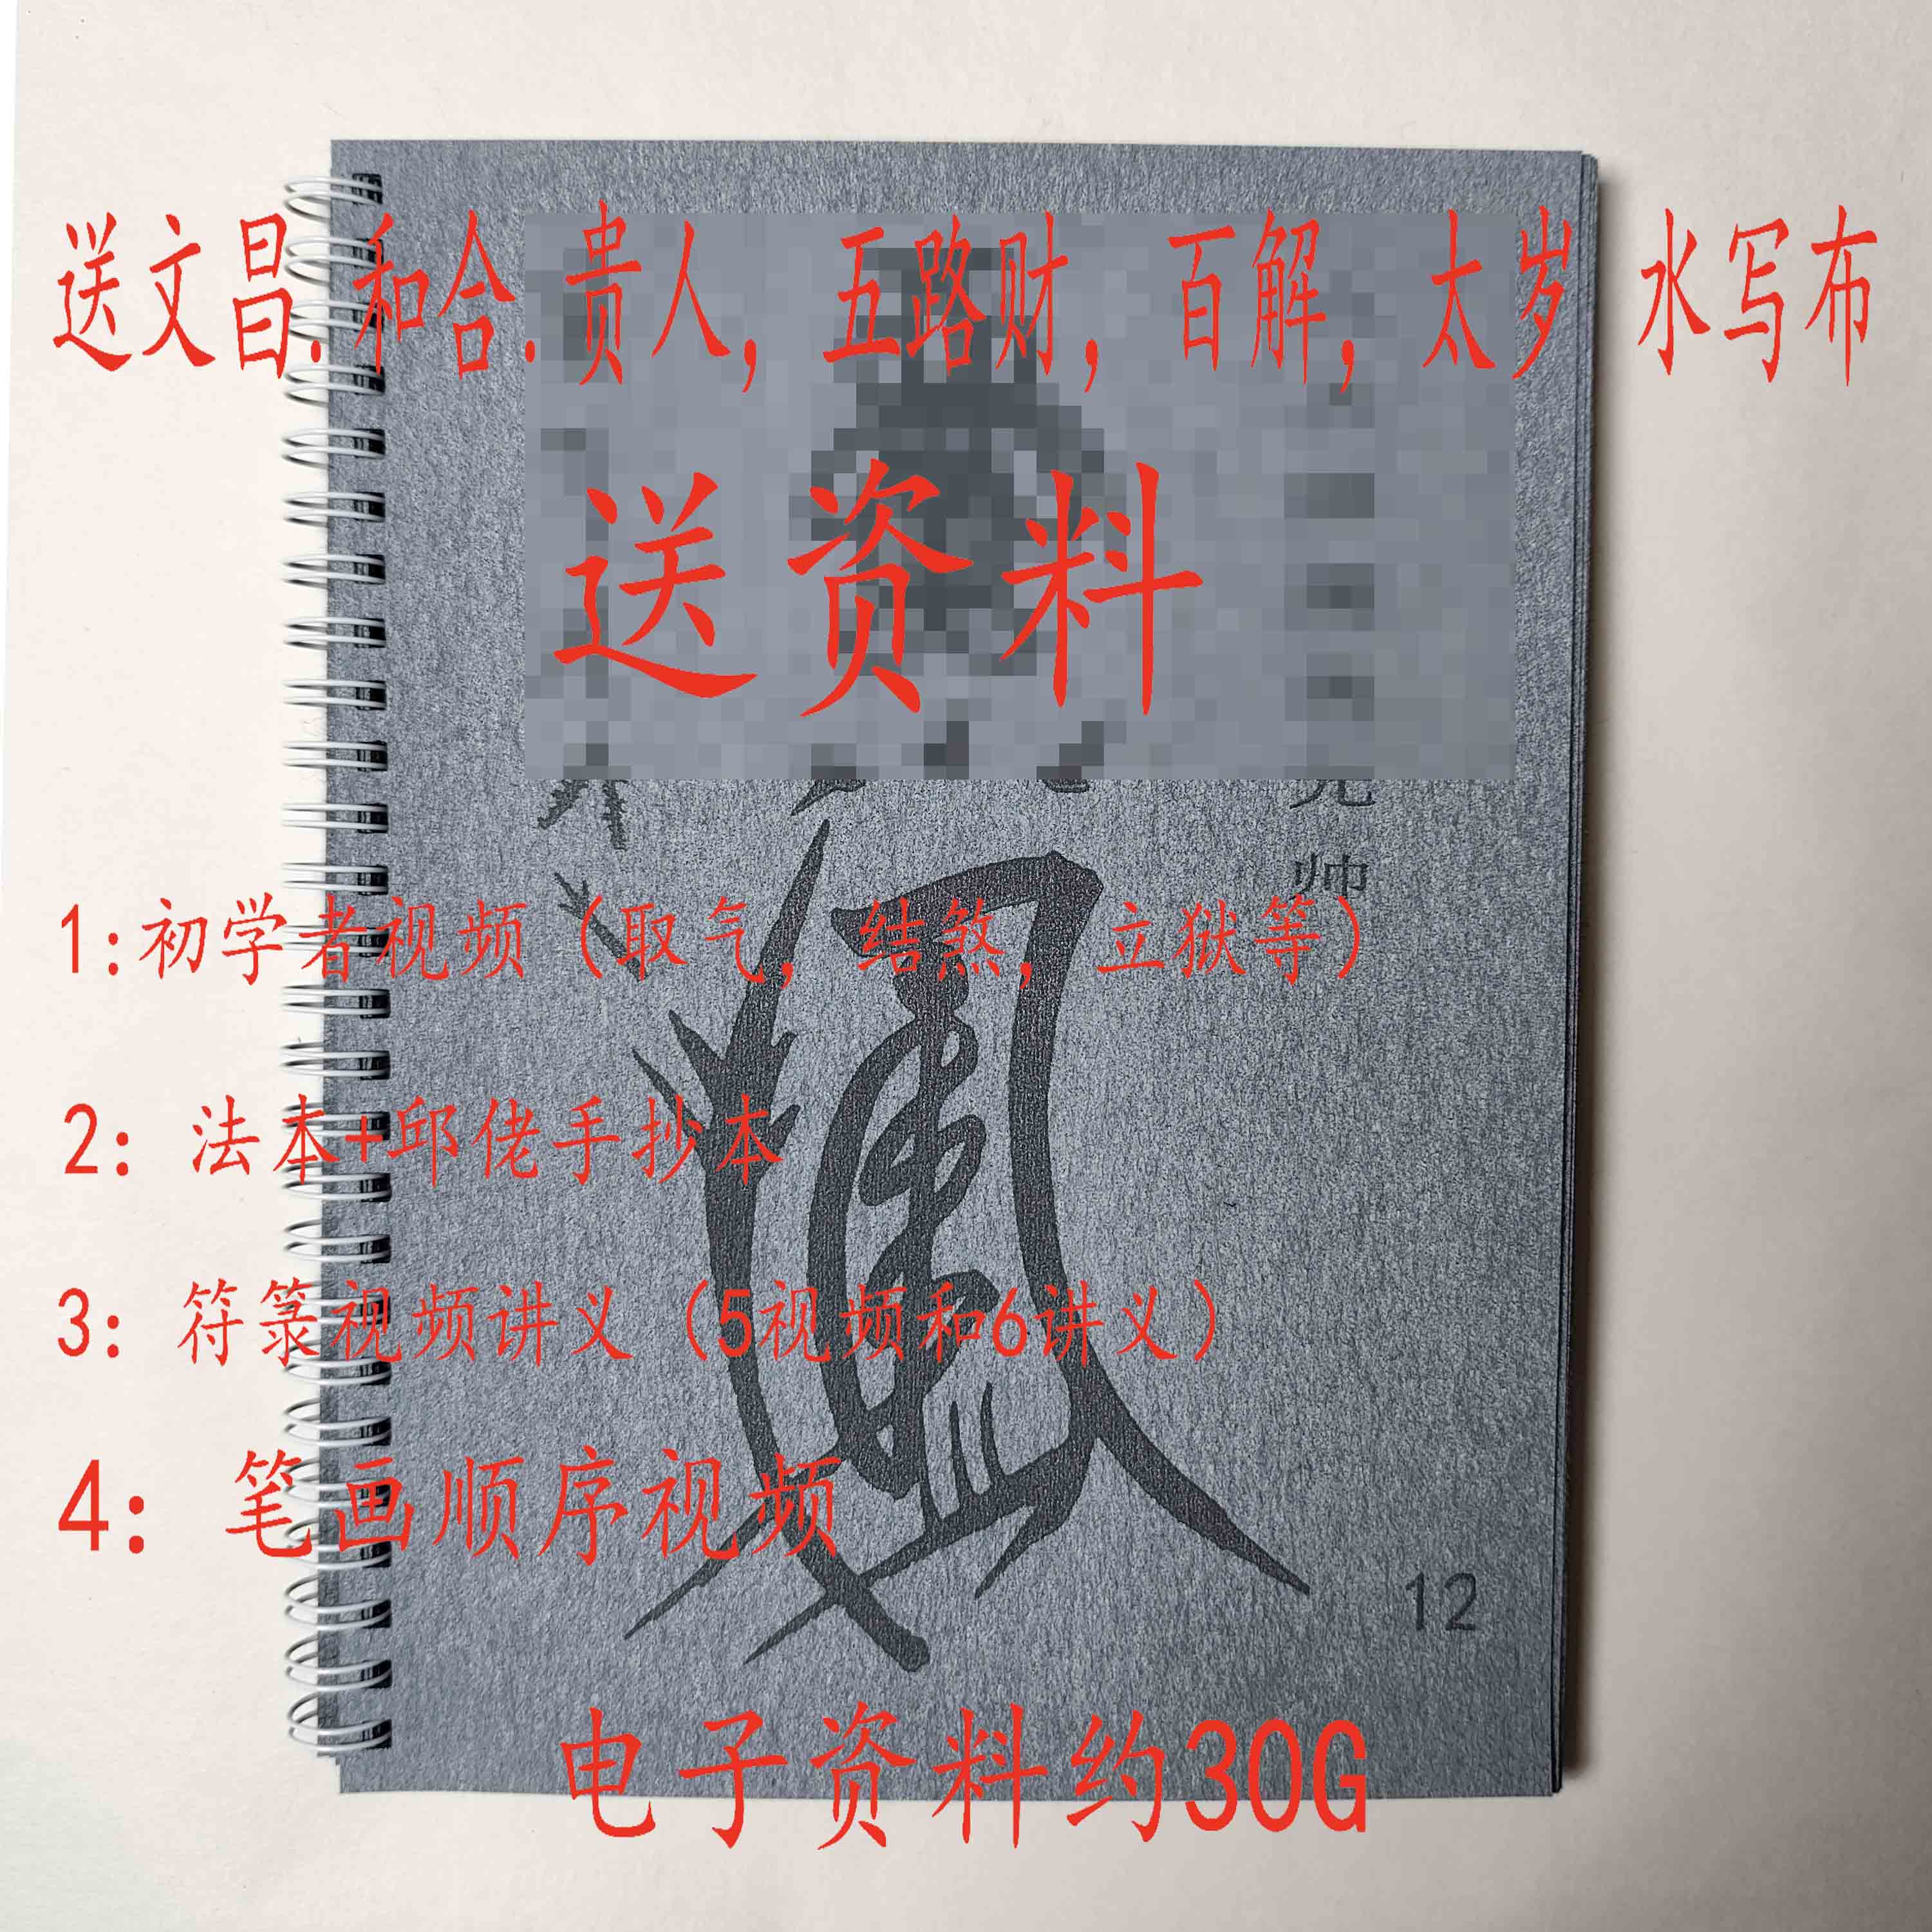 送文昌.和合.贵人，五路财，百解，太岁 水写布
送资料
帅
1:初学者视频（取气，结煞，立狱等）
2：法本+邱佬手抄本
3：符箓视频讲义（5视频和6讲义）
4：笔画顺序视频
12
电子资料约30G